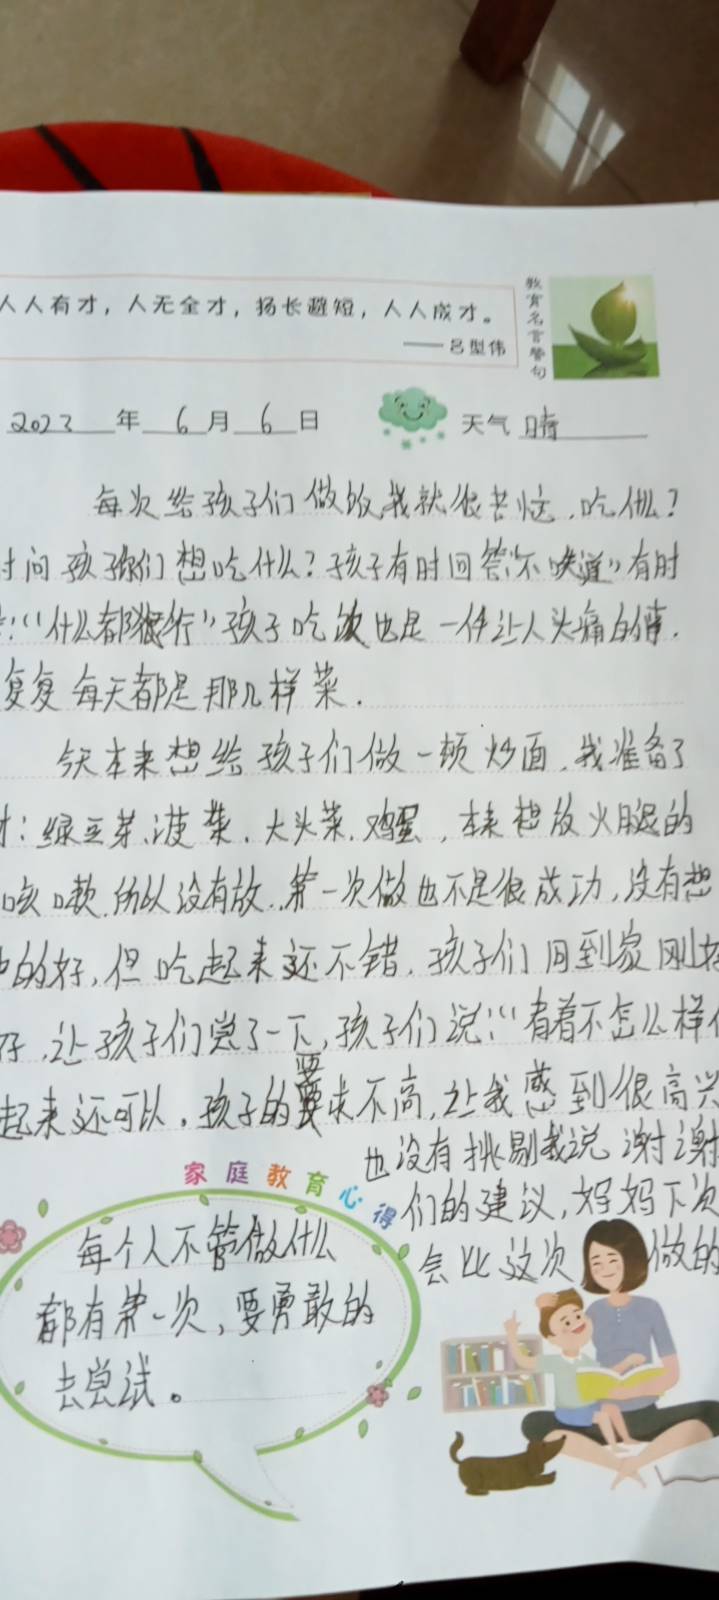 人人有才，人无全才，扬长避短，人人成才。
——吕型伟
教育名言警句
2023年6月6日 天气 晴
每次给孩子们做饭我就很苦恼，吃什么？
时问孩子们想吃什么？孩子有时回答：“不知道”有时
：“什么都行”孩子吃饭也是一件让人头痛的事.
复复每天都是那几样菜.
今天本来想给孩子们做一顿炒面，我准备了
材：绿豆芽、菠菜、大头菜、鸡蛋，本来想放火腿的
咳嗽所以没有放.第一次做也不是很成功,没有想
的好,但吃起来还不错.孩子们回到家刚好
好,让孩子们尝了一下,孩子们说：“看着不怎么样
起来还可以。孩子的要求不高,让我感到很高兴
也没有挑剔我说谢谢
们的建议,妈妈下次
会比这次做的
家庭教育心得
每个人不管做什么
都有第一次,要勇敢的
去尝试。